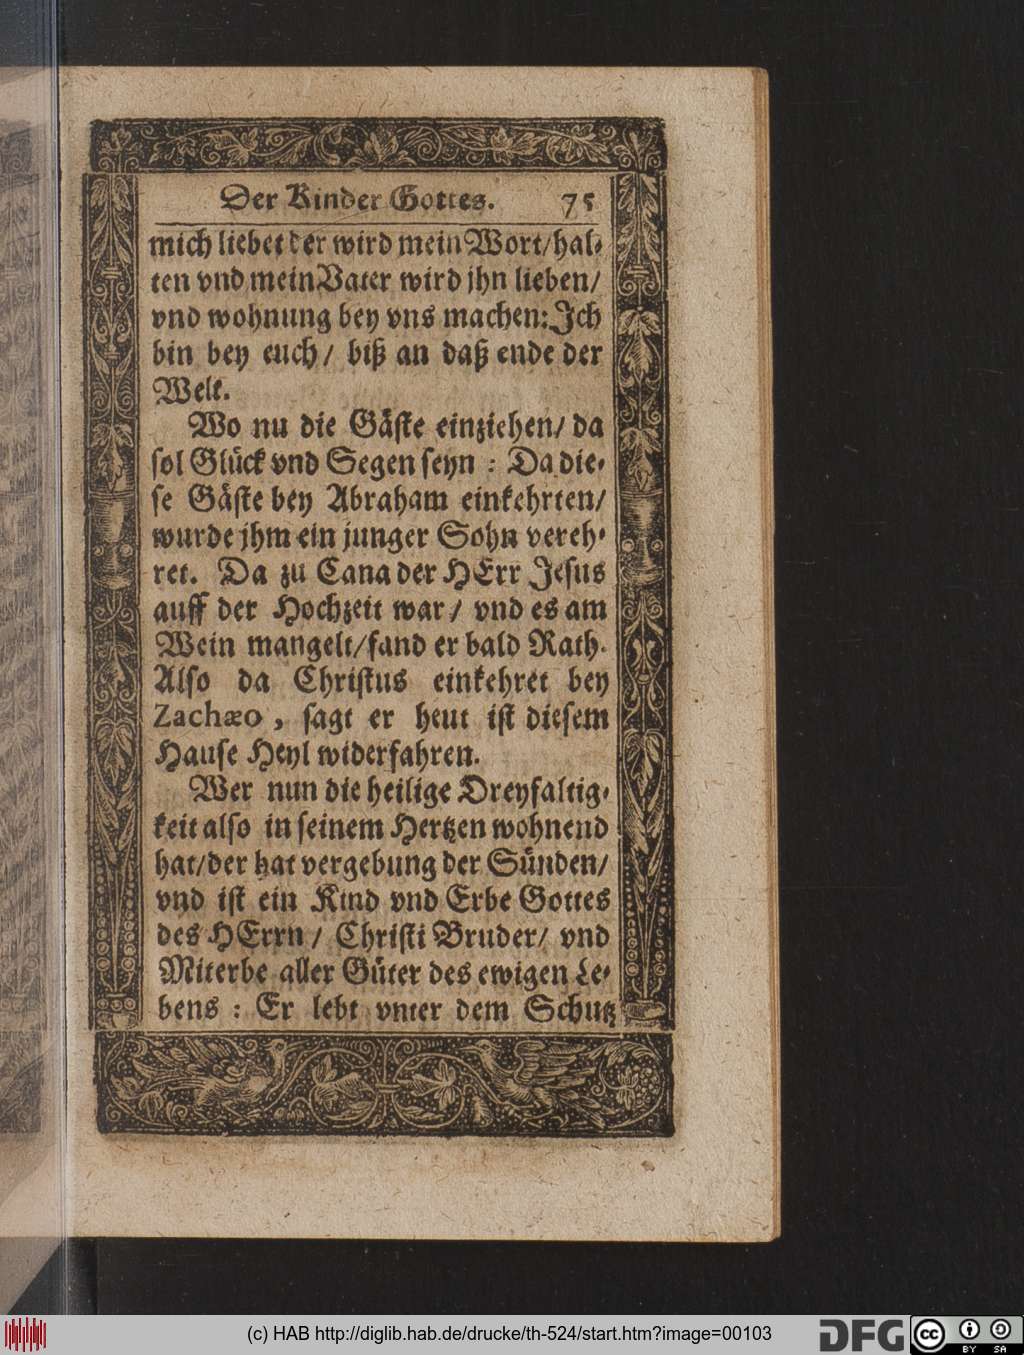 Der Kinder Gottes. 75
mich liebet der wird mein Wort/hal-
ten vnd mein Vater wird jhn lieben/
vnd wohnung bey vns machen: Jch
bin bey euch/ biß an daß ende der
Welt.
Wo nu die Gäste einziehen/ da
sol Glück vnd Segen seyn : Da die-
se Gäste bey Abraham einkehrten/
wurde jhm ein junger Sohn vereh-
ret. Da zu Cana der HErr Jesus
auff der Hochzeit war/ vnd es am
Wein mangelt/fand er bald Rath.
Also da Christus einkehret bey
Zachæo, sagt er heut ist diesem
Hause Heyl widerfahren.
Wer nun die heilige Dreyfaltig-
keit also in seinem Hertzen wohnend
hat/der hat vergebung der Sünden/
vnd ist ein Kind vnd Erbe Gottes
des HErrn/ Christi Bruder/ vnd
Miterbe aller Güter des ewigen Le-
bens : Er lebt vnter dem Schutz
(c) HAB http://diglib.hab.de/drucke/th-524/start.htm?image=00103
DFG
cc BY SA